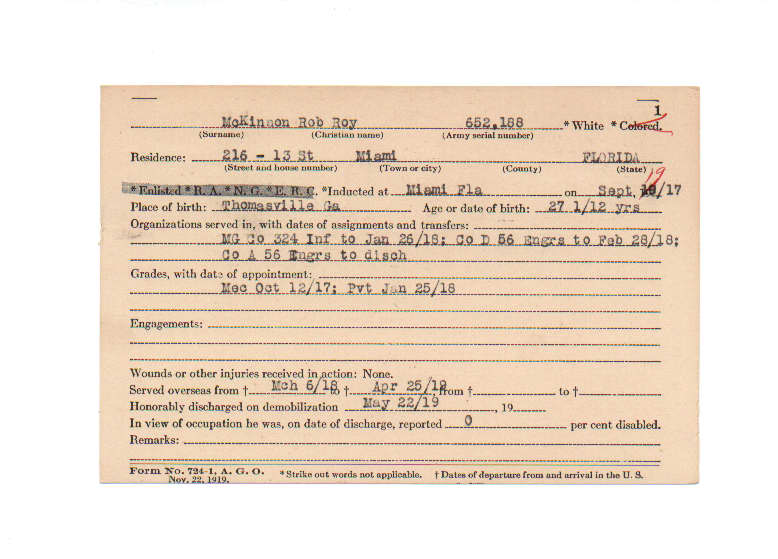 1
McKinnon Rob Roy 652,188 * White * Colored.
(Surname) (Christian name) (Army serial number)
Residence: 216 - 13 St Miami FLORIDA
(Street and house number) (Town or city) (County) (State)
* Enlisted * R. A. * N. G. * E. R. C. * Inducted at Miami Fla on Sept, 19/17
19
Place of birth: Thomasville Ga Age or date of birth: 27 1/12 yrs
Organizations served in, with dates of assignments and transfers:
MG Co 324 Inf to Jan 26/18; Co D 56 Engrs to Feb 28/18;
Co A 56 Engrs to disch
Grades, with date of appointment:
Mec Oct 12/17; Pvt Jan 25/18
Engagements:
Wounds or other injuries received in action: None.
Served overseas from † Mch 6/18 to † Apr 25/19, from † to †
Honorably discharged on demobilization May 22/19, 19
In view of occupation he was, on date of discharge, reported 0 per cent disabled.
Remarks:
Form No. 724-1, A. G. O. * Strike out words not applicable. † Dates of departure from and arrival in the U. S.
Nov. 22, 1919.